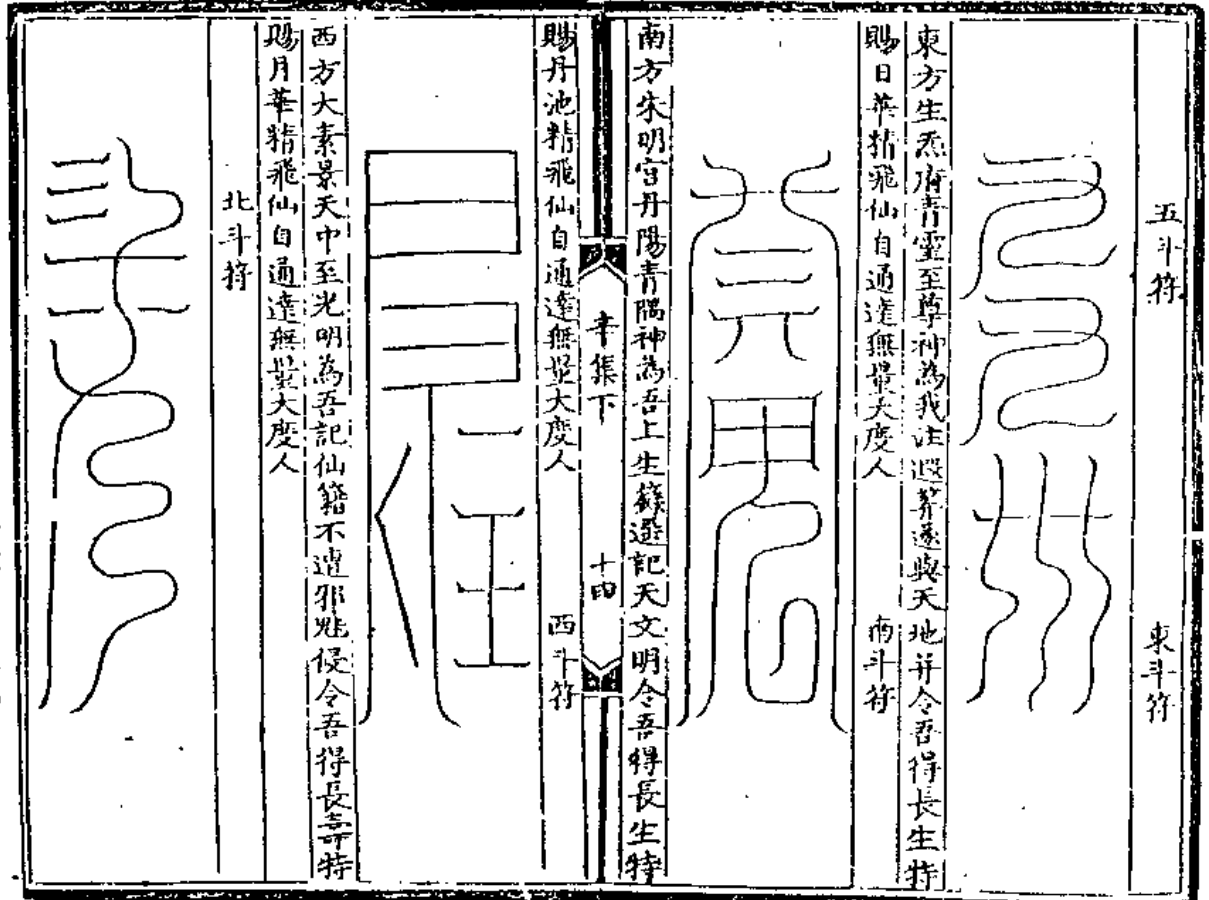 五斗符 東斗符
東方生炁府青靈至尊神為我注遐算遂與天地并令吾得長生特
賜日華精飛仙自通達無量大度人 南斗符
南方朱明宮丹陽青隅神為吾上生籙選記天文明令吾得長生特
辛集下 十四
賜丹池精飛仙自通達無量大度人 西斗符
西方大素景天中至光明為吾記仙籍不遭邪魁侵令吾得長壽特
賜月華精飛仙自通達無量大度人
北斗符